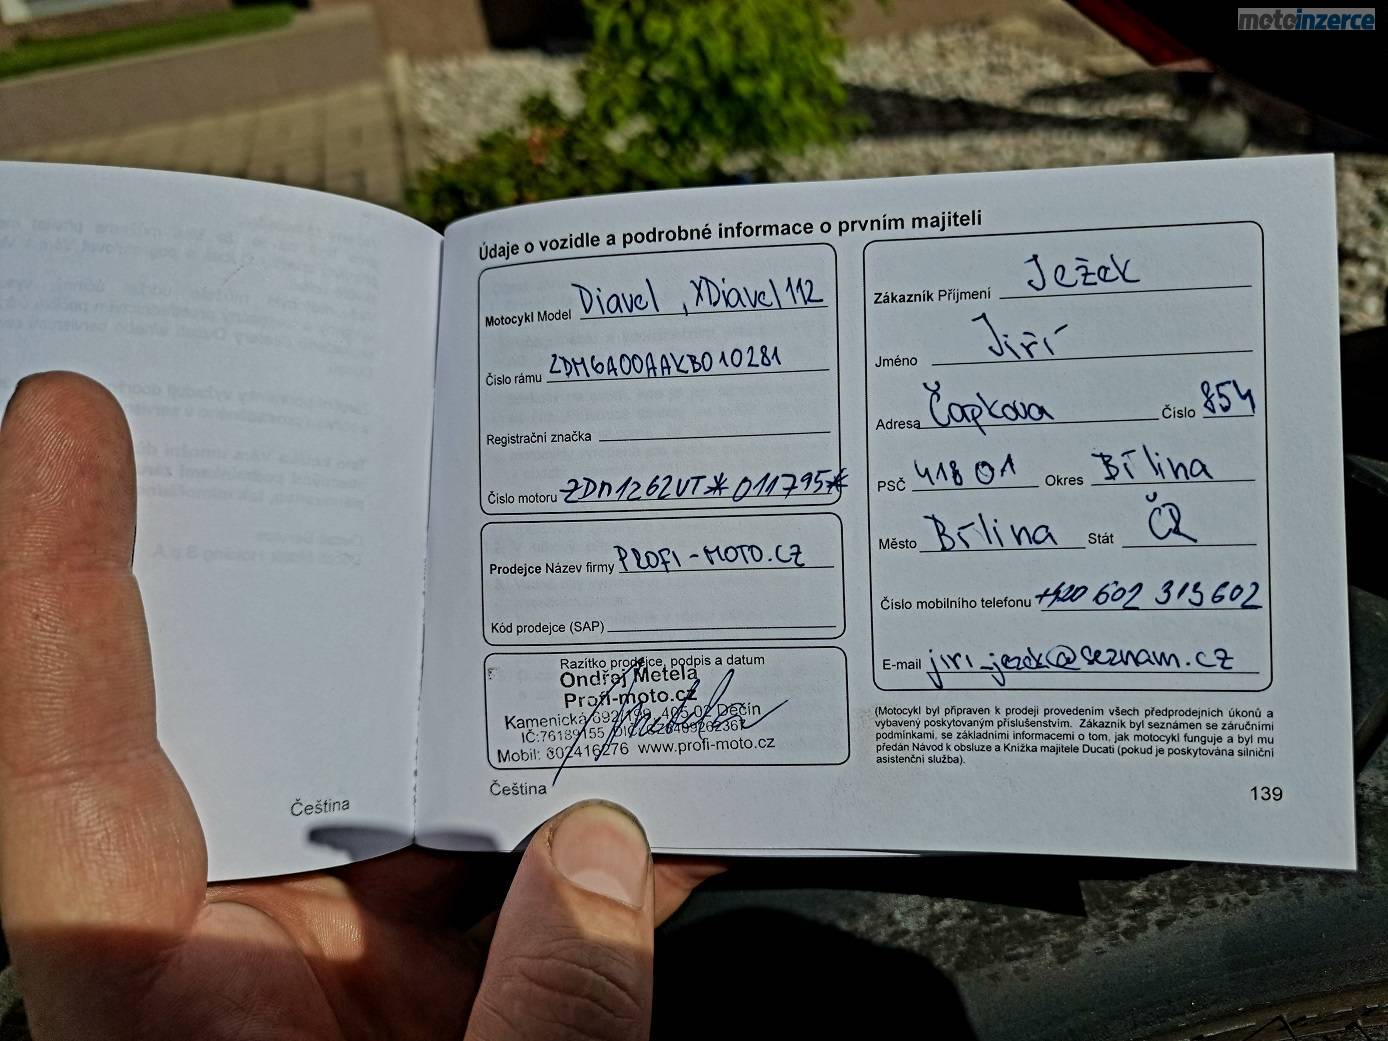 motoinzerce
Údaje o vozidle a podrobné informace o prvním majiteli
Motocykl Model Diavel, XDiavel 112
Číslo rámu ZDM6A00AAKB010281
Registrační značka
Číslo motoru ZDM1262VT* 011795*
Prodejce Název firmy PROFI-MOTO.CZ
Kód prodejce (SAP)
Razítko prodejce, podpis a datum
Ondřej Metela
Profi-moto.cz
Kamenická 692/199, 405 02 Děčín
IČ:76189155
Mobil: 602416276 www.profi-moto.cz
Čeština
Zákazník Příjmení Ježek
Jméno Jiří
Adresa Čapkova Číslo 854
PSČ 418 01 Okres Bílina
Město Bílina Stát ČR
Číslo mobilního telefonu +420 602 313 602
E-mail jiri_jezek@seznam.cz
(Motocykl byl připraven k prodeji provedením všech předprodejních úkonů a
vybavený poskytovaným příslušenstvím. Zákazník byl seznámen se záručními
podmínkami, se základními informacemi o tom, jak motocykl funguje a byl mu
předán Návod k obsluze a Knížka majitele Ducati (pokud je poskytována silniční
asistenční služba).
139
Čeština